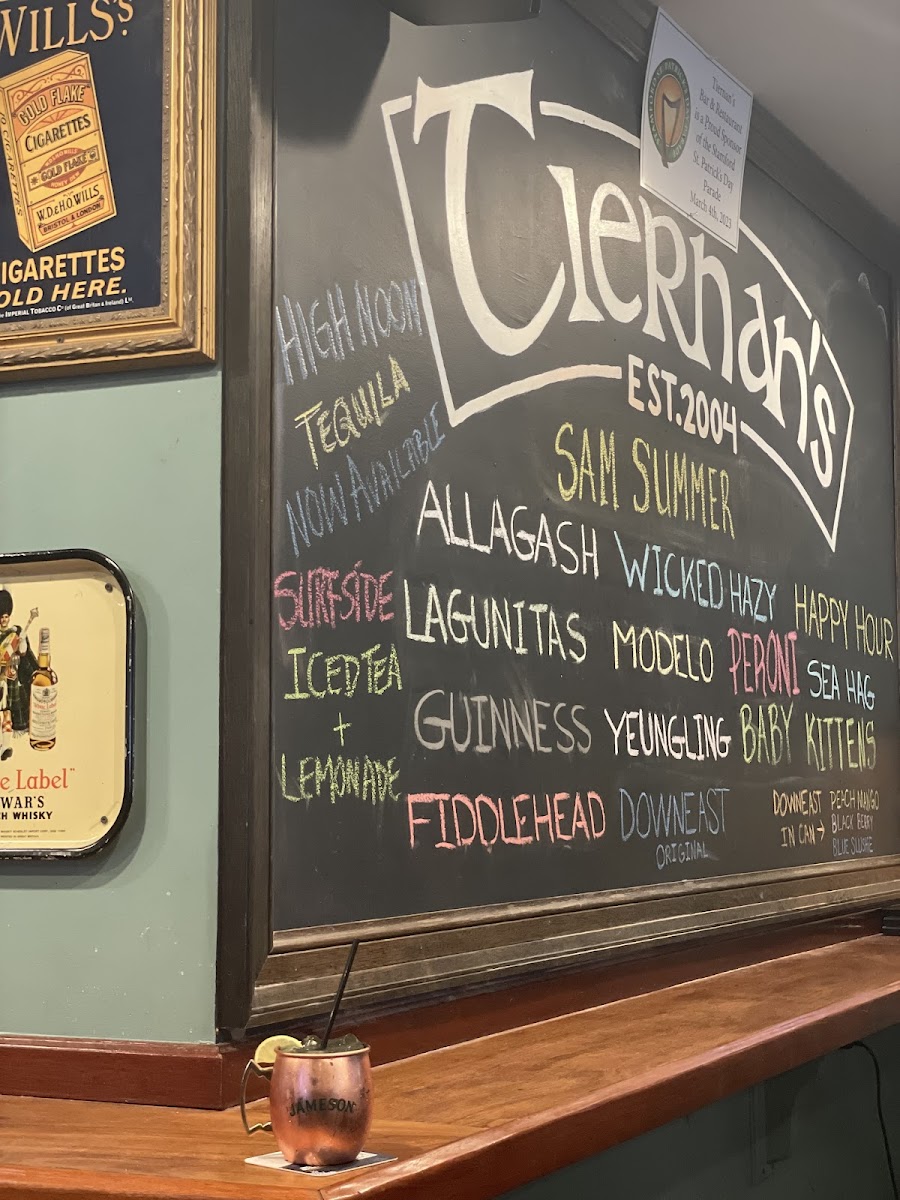 WILLS's
GOLD FLAKE
CIGARETTES
GOLD FLAKE
HONEY DEW
W.D.& H.O. WILLS
BRISTOL & LONDON
CIGARETTES
IGARETTES
OLD HERE.
IMPERIAL TOBACCO Co (of Great Britain & Ireland) Ld.
Tiernan's
Bar & Restaurant
is a Proud Sponsor
of the Stamford
St. Patrick's Day
Parade
March 4th, 2023
Tiernan's
EST. 2004
HIGH NOON
TEQUILA
NOW AVAILABLE
SURFSIDE
ICED TEA
+
LEMONADE
SAM SUMMER
ALLAGASH WICKED HAZY HAPPY HOUR
LAGUNITAS MODELO PERONI SEA HAG
GUINNESS YEUNGLING BABY KITTENS
FIDDLEHEAD DOWNEAST
ORIGINAL
DOWNEAST
IN CAN →
PEACH MANGO
BLACK BERRY
BLUE SLUSHE
e Label"
WAR'S
H WHISKY
JAMESON